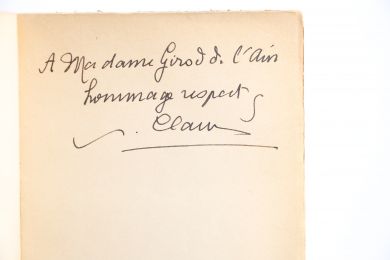 A Madame Girod de l'Ain
hommage respect